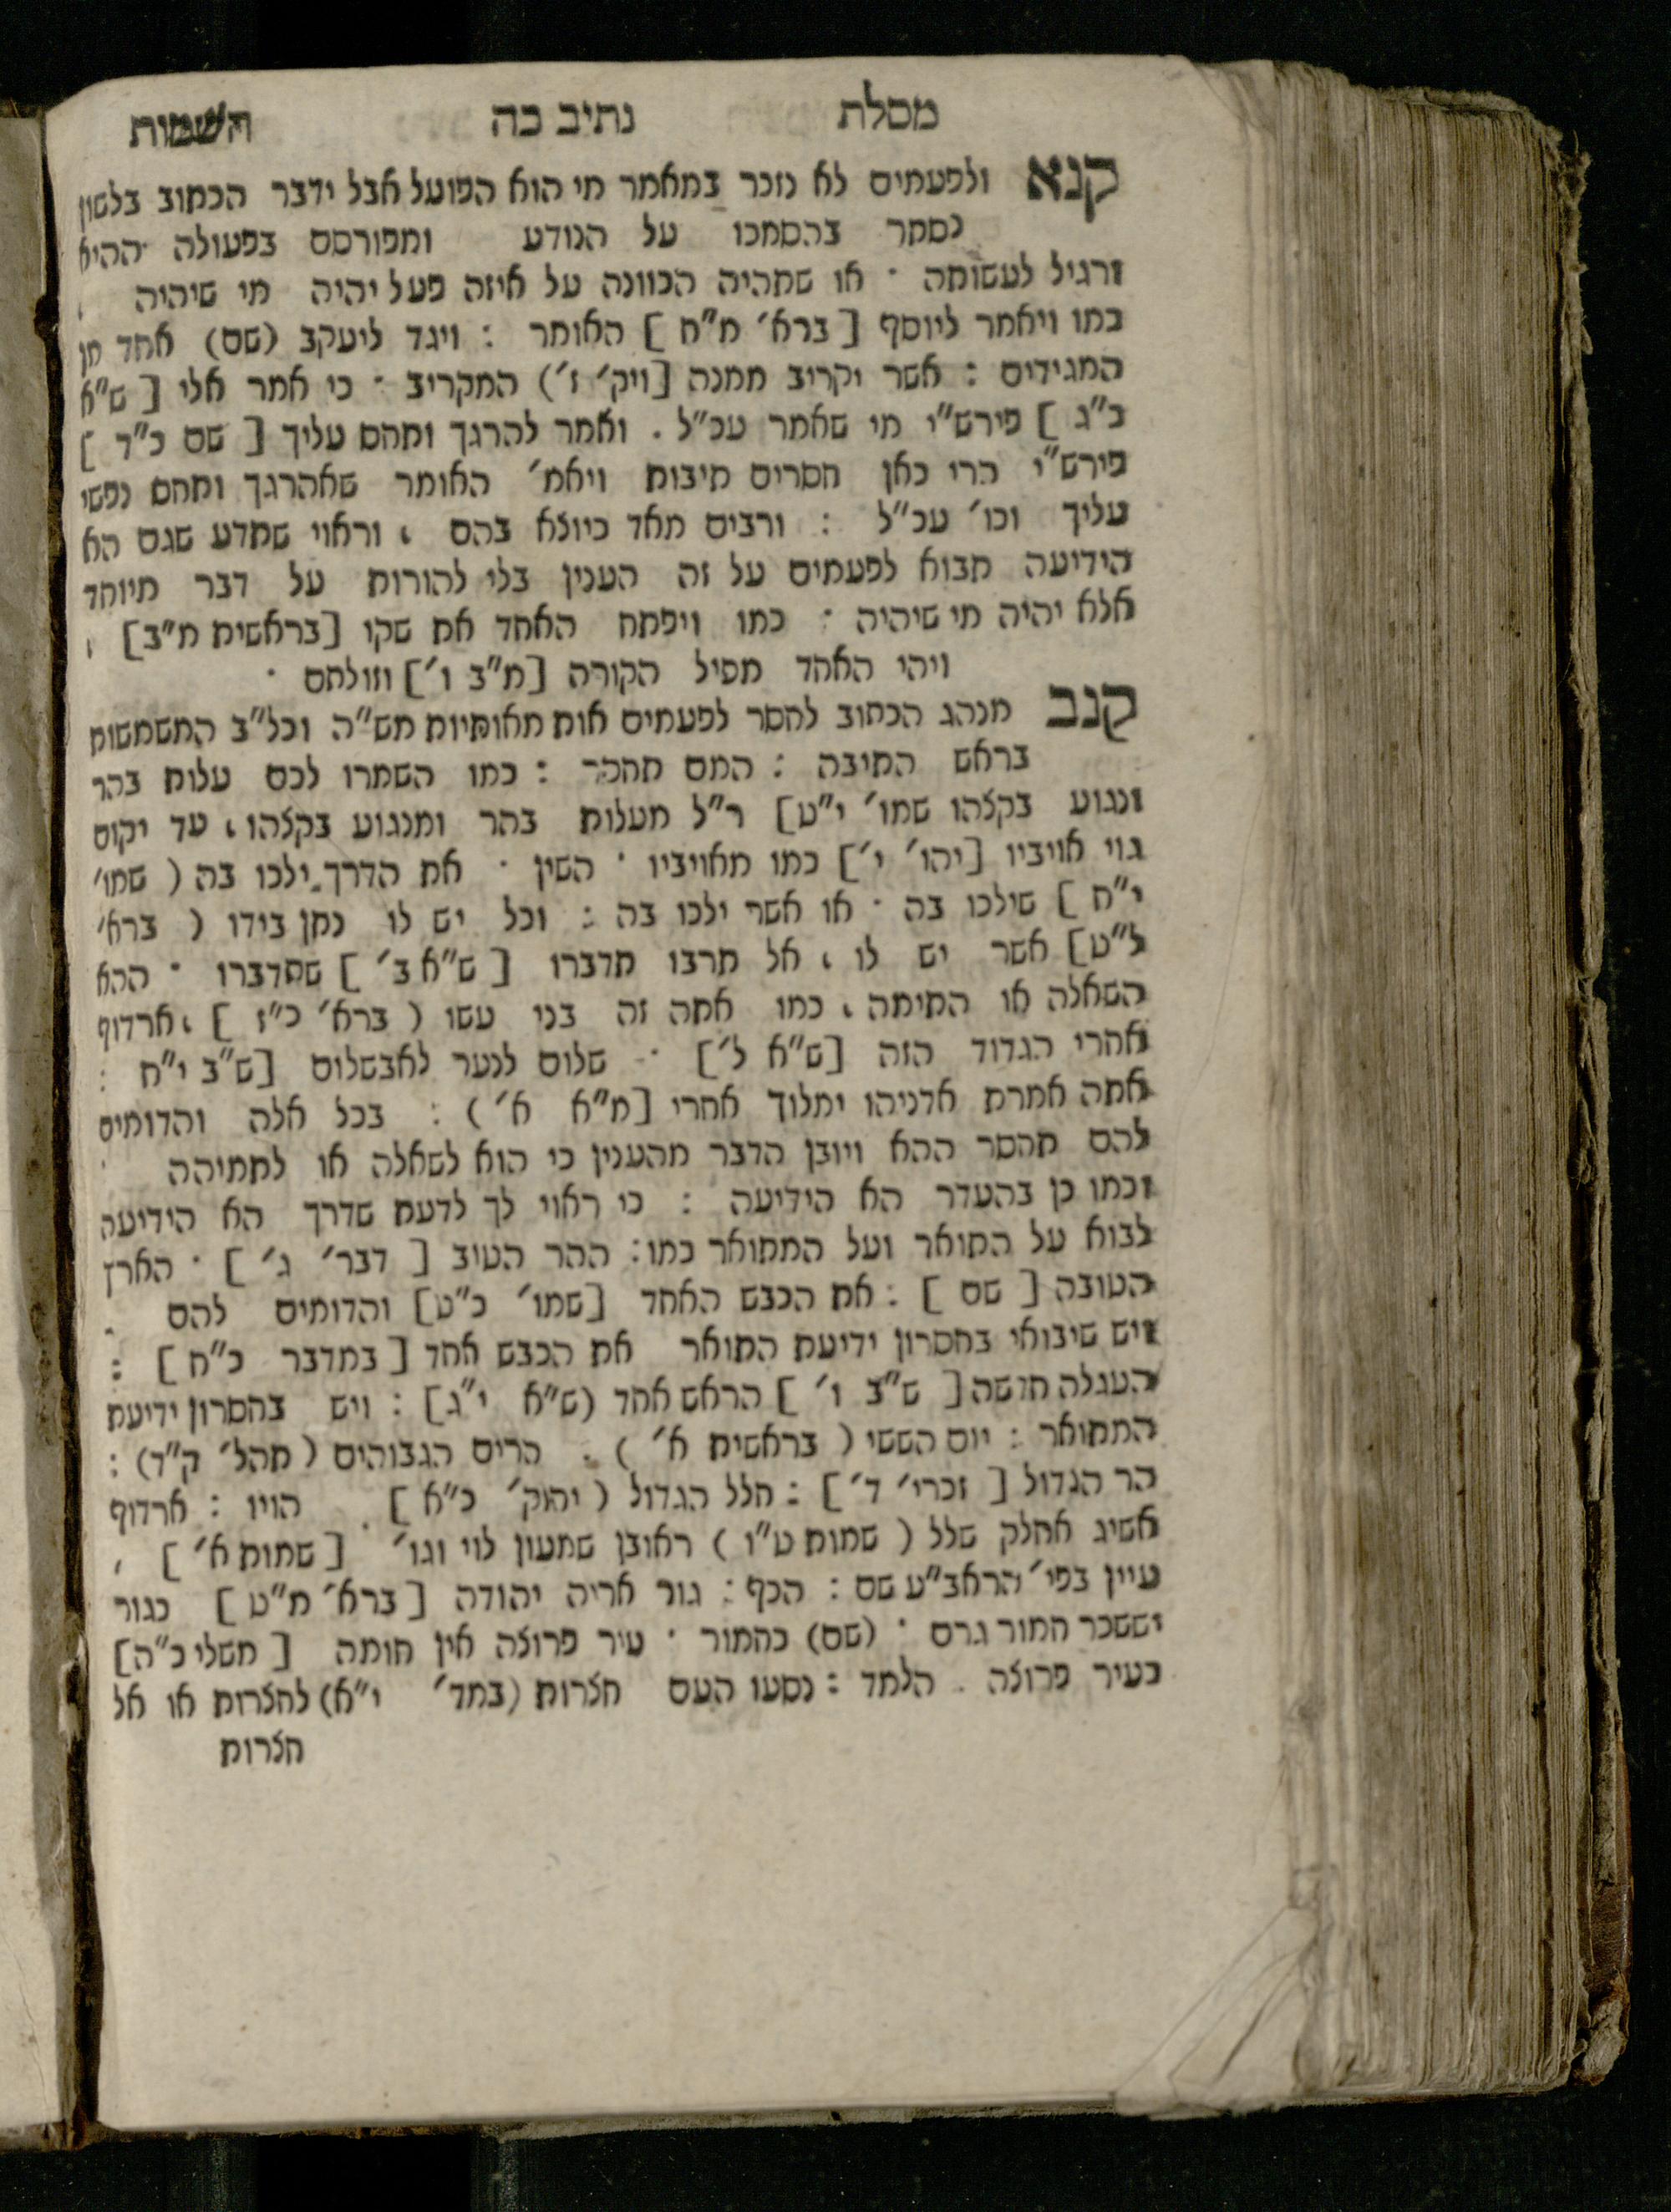 מסלת נתיב כה השמות
קנא ולפעמים לא נזכר במאמר מי הוא הפועל אבל ידבר הכתוב בלשון
נסתר בהסמכו על הנודע ומפורסם בפעולה ההיא
ורגיל לעשותה · או שתהיה הכוונה על איזה פעל יהיה מי שיהיה ,
כמו ויאמר ליוסף [ ברא׳ מ״ח ] האומר : ויגד ליעקב (שם) אחד מן
המגידים : אשר יקריב ממנה [ויק׳ ז׳) המקריב · כי אמר אלי [ ש״א
כ״ג ] פירש״י מי שאמר עכ״ל . ואמר להרגך ותחס עליך [ שם כ״ד ]
פירש״י הרי כאן חסרים תיבות ויאמ׳ האומר שאהרגך ותחס נפשי
עליך וכו׳ עכ״ל : ורבים מאד כיוצא בהם , וראוי שתדע שגם הא
הידיעה תבוא לפעמים על זה הענין בלי להורות על דבר מיוחד
אלא יהיה מי שיהיה · כמו ויפתח האחד את שקו [בראשית מ״ב] ,
ויהי האחד מפיל הקורה [מ״ב ו׳] וזולתם ·
קנב מנהג הכתוב לחסר לפעמים אות מאותיות מש״ה וכל״ב המשמשות
בראש התיבה : המם תחסר : כמו השמרו לכם עלות בהר
ונגוע בקצהו שמו׳ י״ט] ר״ל מעלות בהר ומנגוע בקצהו , עד יקום
גוי אויביו [יהו׳ י׳] כמו מאויביו · השין · את הדרך ילכו בה ( שמו׳
י״ח ] שילכו בה · או אשר ילכו בה : וכל יש לו נתן בידו ( ברא׳
ל״ט] אשר יש לו , אל תרבו תדברו [ ש״א ב׳ ] שתדברו · ההא
השאלה או התימה , כמו אתה זה בני עשו ( ברא׳ כ״ז ] , ארדוף
אחרי הגדוד הזה [ש״א ל׳] · שלום לנער לאבשלום [ש״ב י״ח :
אתה אמרת אדניהו ימלוך אחרי [מ״א א׳ ) : בכל אלה והדומים
להם תחסר ההא ויובן הדבר מהענין כי הוא לשאלה או לתמיהה
וכמו כן בהעדר הא הידיעה : כי ראוי לך לדעת שדרך הא הידיעה
לבוא על התואר ועל המתואר כמו : ההר הטוב [ דבר׳ ג׳ ] · הארץ
הטובה [ שם ] : את הכבש האחד [שמו׳ כ״ט] והדומים להם .
ויש שיבואו בחסרון ידיעת התואר את הכבש אחד [ במדבר כ״ח ] :
העגלה חדשה [ ש״ב ו׳ ] הראש אחד (ש״א י״ג] : ויש בחסרון ידיעת
המתואר : יום הששי ( בראשית א׳ ) . הרים הגבוהים ( תהל׳ ק״ד) :
הר הגדול [ זכרי׳ ד׳ ] : חלל הגדול ( יחזק׳ כ״א ] . הויו : ארדוף
אשיג אחלק שלל ( שמות ט״ו ) ראובן שמעון לוי וגו׳ [ שמות א׳ ] ,
עיין בפי׳ הראב״ע שם : הכף : גור אריה יהודה [ ברא׳ מ״ט ] כגור
יששכר חמור גרם · (שם) כחמור · עיר פרוצה אין חומה [ משלי כ״ה]
כעיר פרוצה . הלמד : נסעו העם חצרות (במד׳ י״א) לחצרות או אל
חצרות